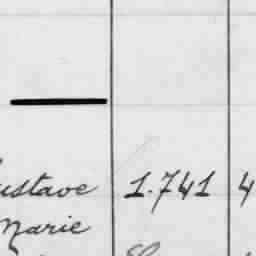 ustave 1.741 4
Marie